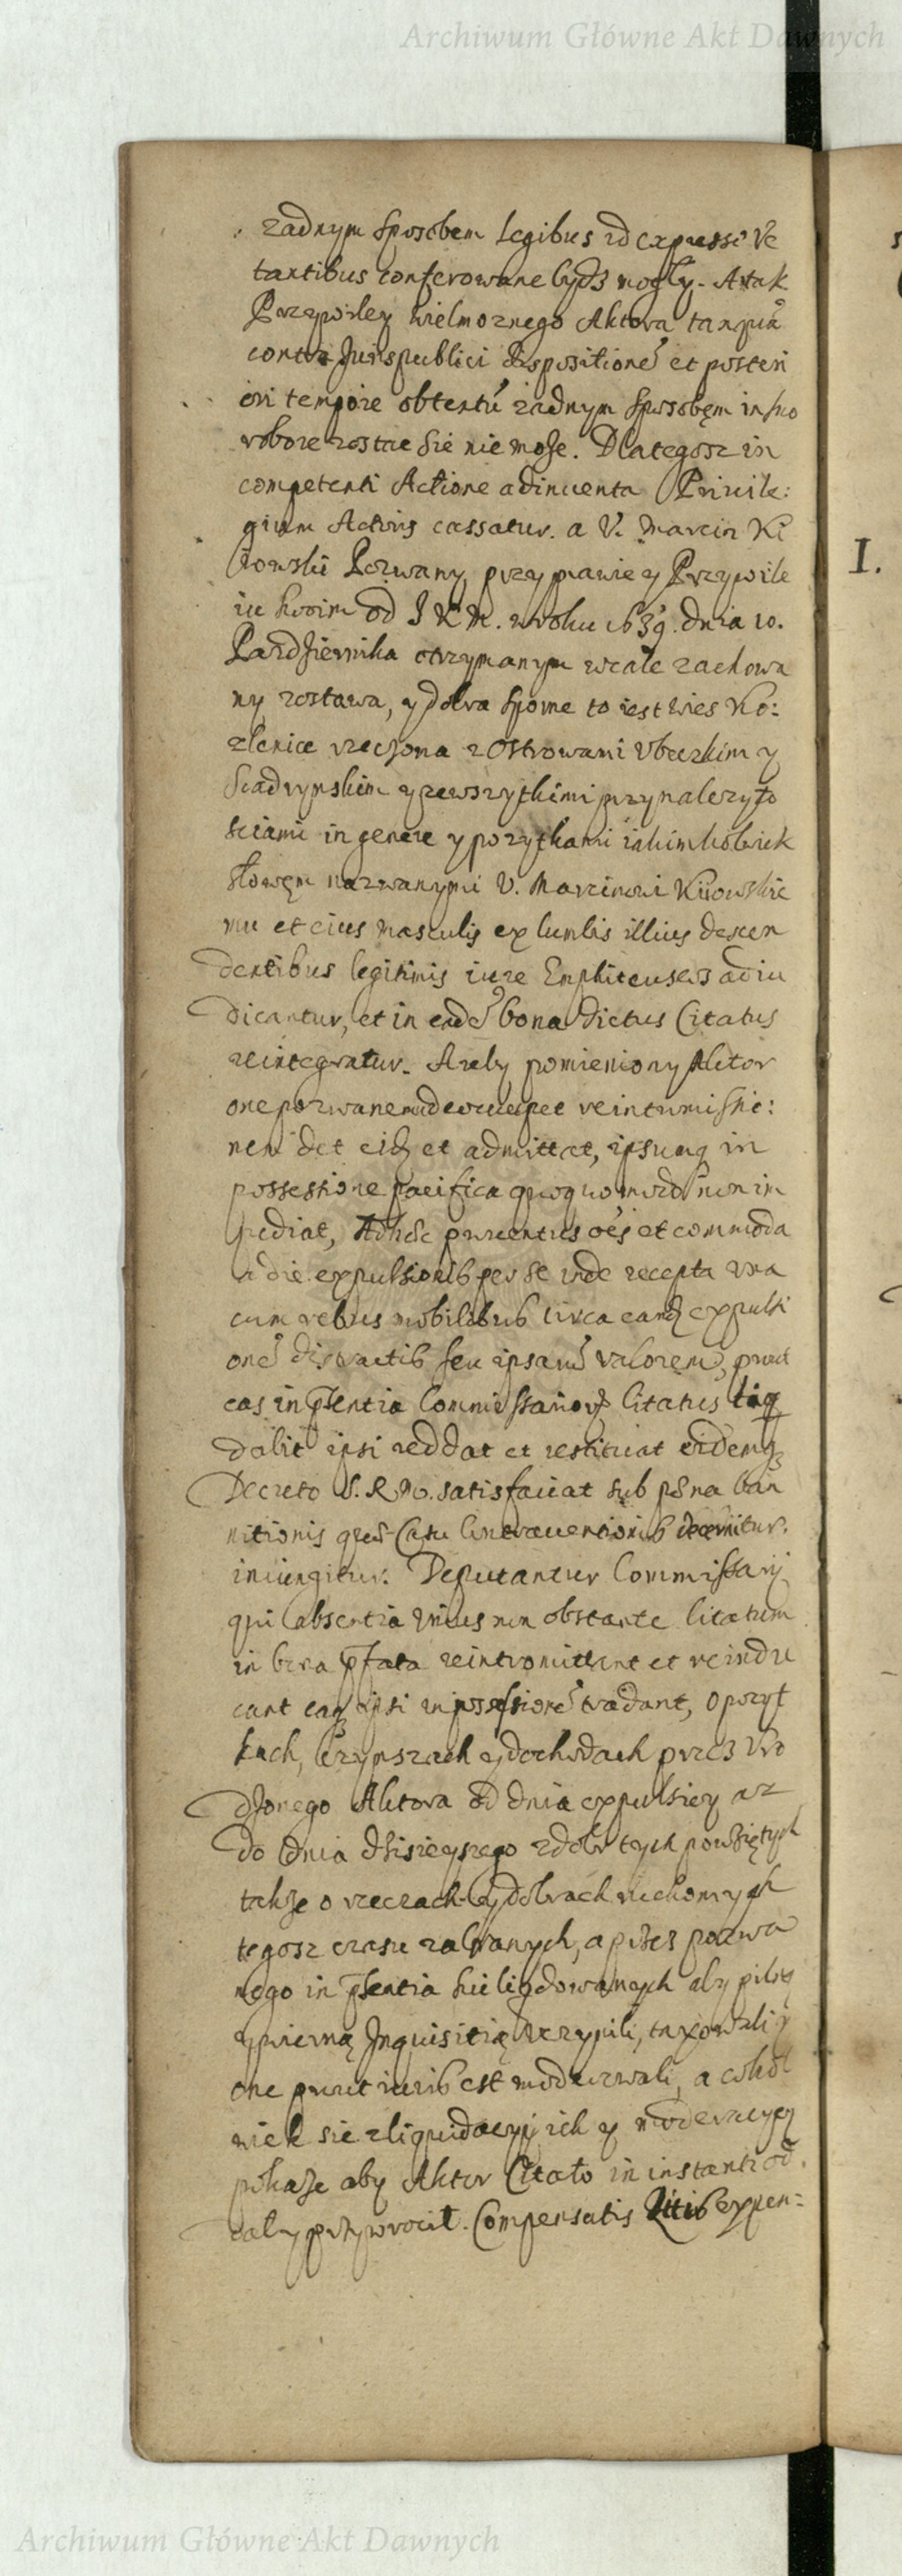 Archiwum Główne Akt Dawnych
zadnym sposobem Legibus id expresse ve
tantibus conferowane bydz mogły. A tak
Przywiley wielmoznego Aktora tanquā
contra Juris publici dispositionē et posteri
ori tempore obtentū zadnym sposobęm in suo
robore zostac sie nie moze. Dlategosz in
competenti Actione adinventa Privile:
gium Actoris cassatur. a V. Marcin Ki
iowski Pozwany przy prawie y Przywile
iu swoim od J K M. w roku 1639. dnia 10.
Pazdziernika otrzymanym wcale zachowa
ny zostawa, y dobra sporne to iest wies Ko:
zlenice rzeczona z Ostrowami y
y zewszytkimi przynalezyto
sciami in genere y pozytkami iakimkolwiek
słowęm nazwanymi V. Marcinowi Kiiowskie
mu et eius masculis ex lumbis illius descen
dentibus legitimis iure Emphiteuseos adiu
dicantur, et in eadē bona dictus Citatus
reintegratur. Azeby pomieniony Aktor
one pozwanemu reintromissio:
nem det eidē et admittat, ipsumq in
possessione pacifica quoquo modo non im
pediat, Ad hęc proventus oēs et commoda
a die expulsionis per se inde recepta una
cum rebus mobilibus circa eandē expulsi
onē distractis seu ipsarū valorem, prout
eas in pn̄sentia Commissariorū Citatus liq
dabit ipsi reddat et restituat eidemq
Decreto S. R. M. satisfaciat sub pœna ban
nitionis quæ Casu Contraventionis decernitur.
iniungitur. Deputantur Commissarij
qui absentia unius non obstante Citatum
in bona pfata reintromittant et reindu
cant eaq ipsi in possessionē tradant, o pozyt
kach, Czynszach y dochodach przez Uro
dzonego Aktora od dnia expulsiey az
do dnia dzisieyszego z dobr tych powziętych
takze o rzeczach y dobrach ruchomych
tegosz czasu zabranych, a przez pozwa
nego in pn̄sentia liqdowanych aby pilną
y wierną Inquisitią uczynili, taxowali y
one prout iuris est moderowali, a cokol
wiek sie z liquidacyj ich y moderacyey
pokaze aby Aktor Citato in instanti od
dał y przywrocił. Compensatis Litis expen=
I.
Archiwum Główne Akt Dawnych